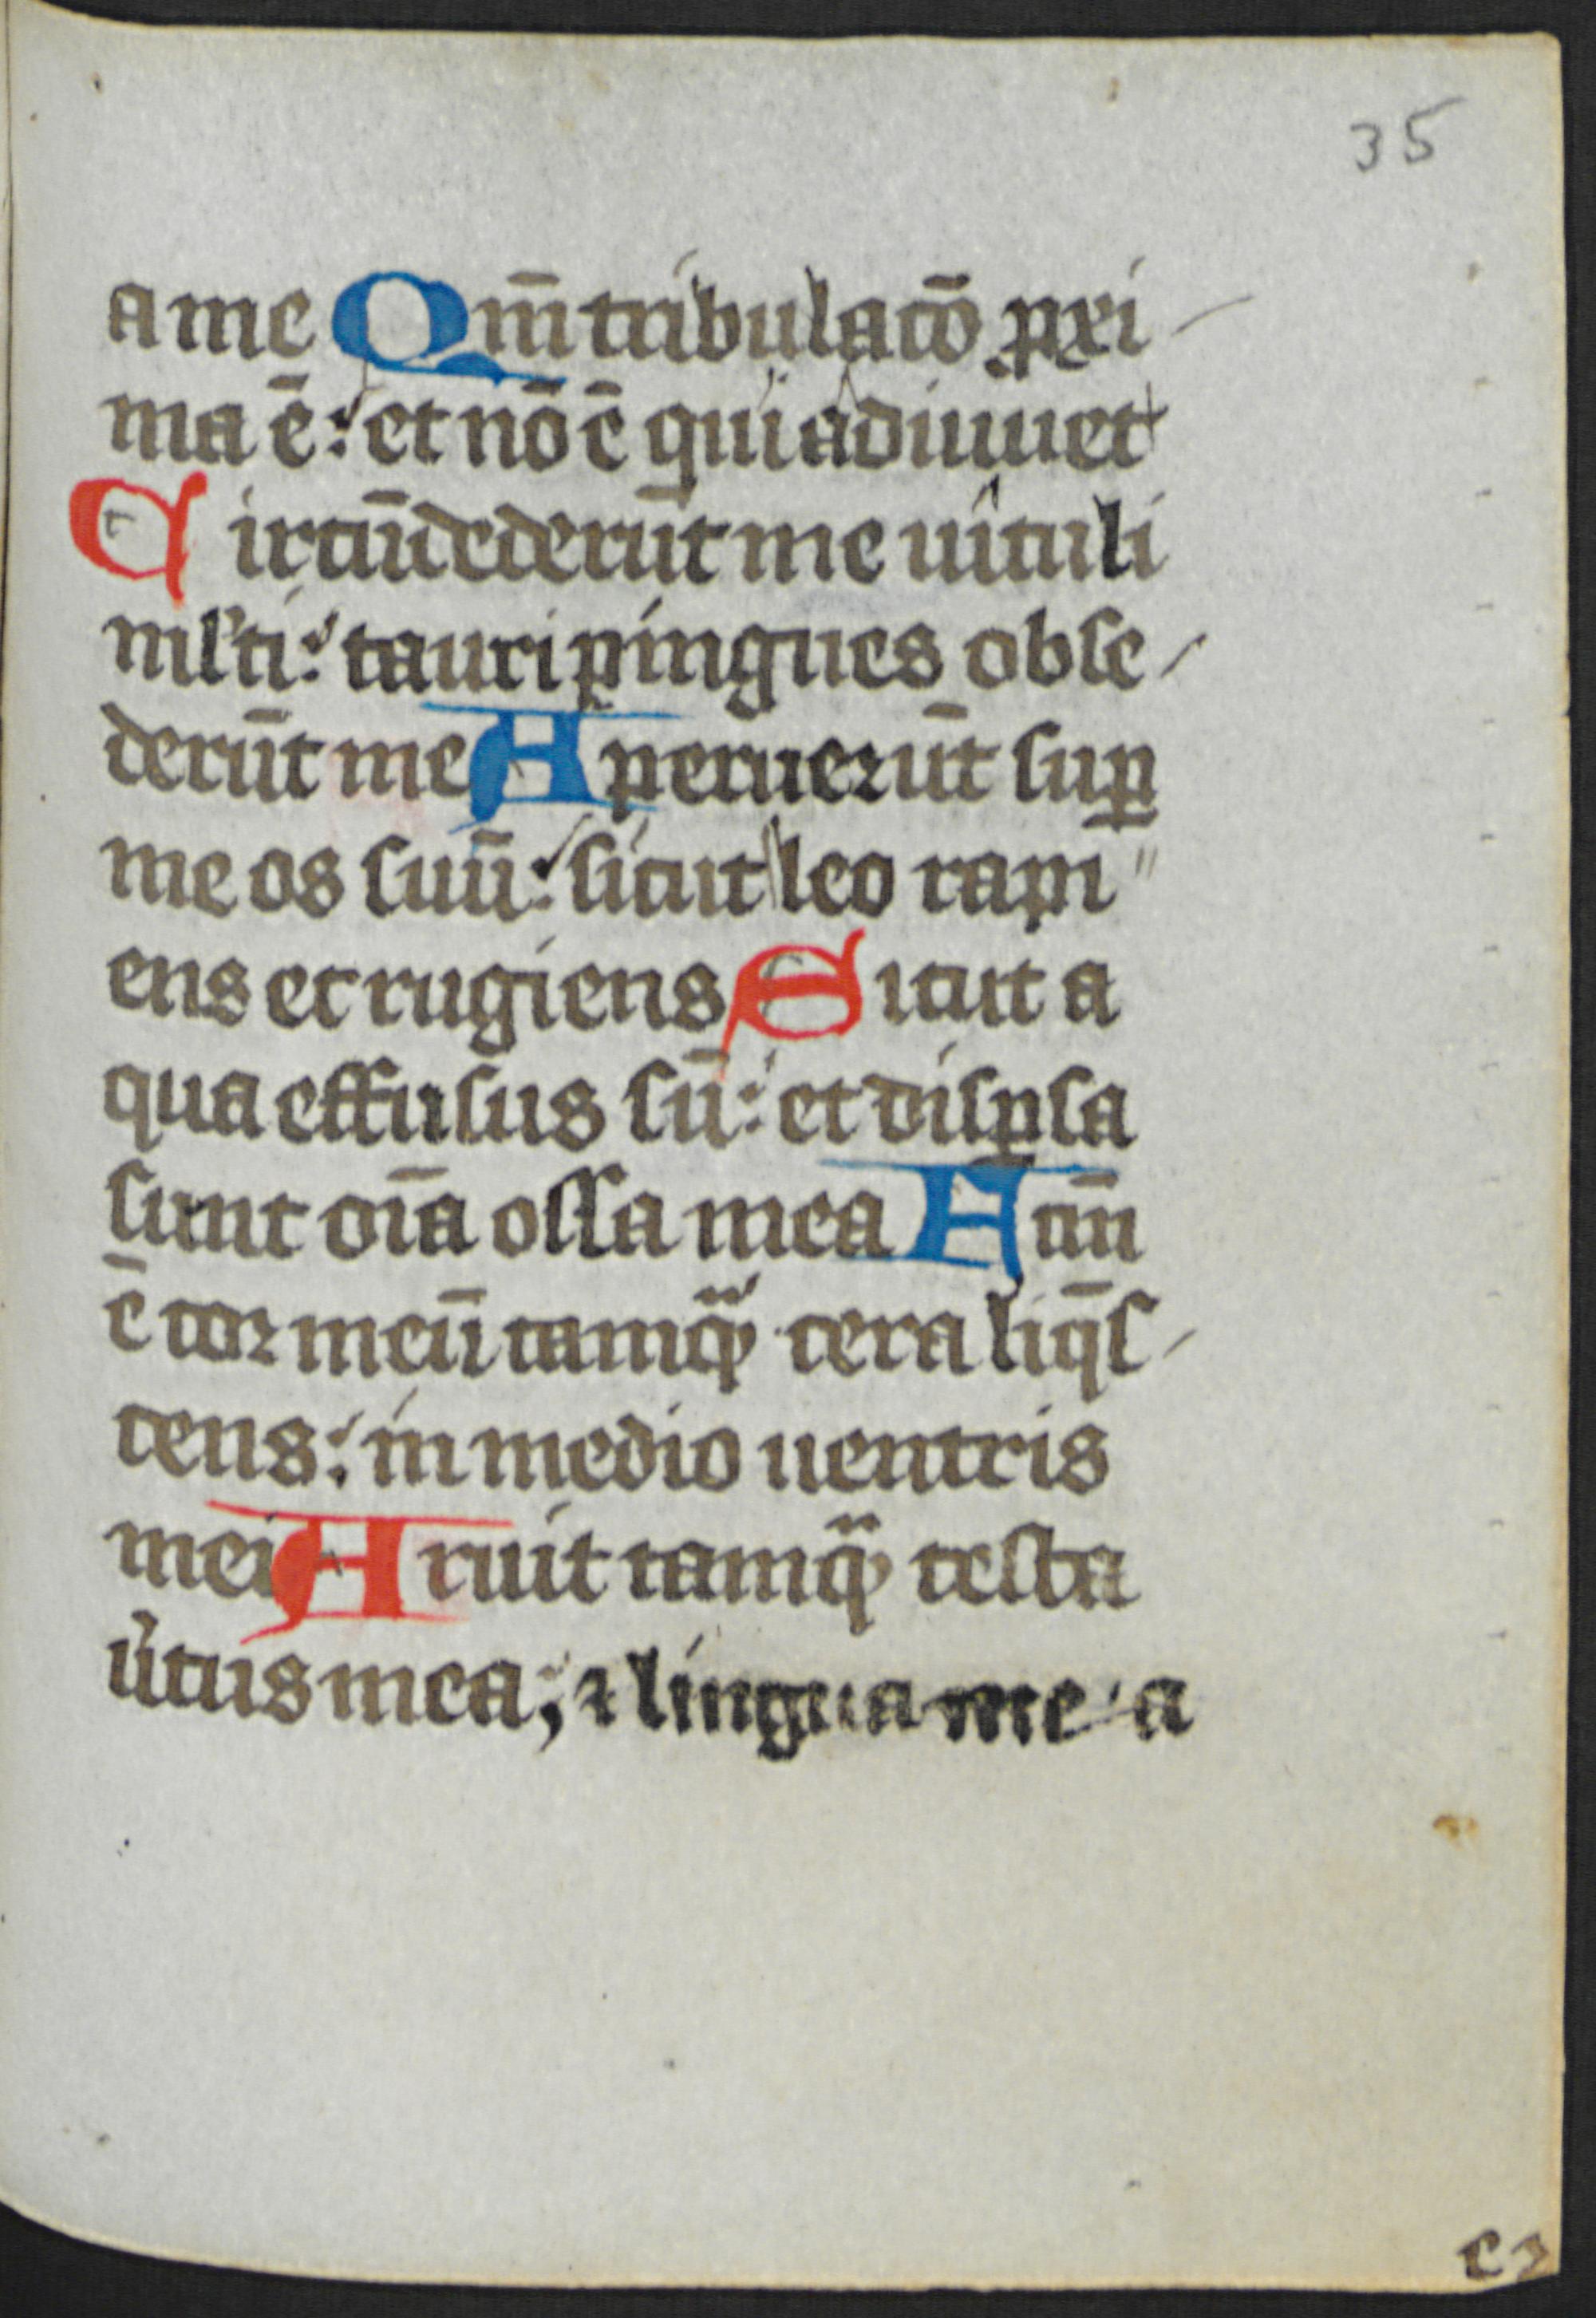 35
a me Qm̄ tribulac̄o ꝓxi
ma ē: et nō ē qui adiuuet
Circūdederūt me uituli
ml'ti: tauri pingues obse
derūt me Aperuerūt suꝑ
me os suū: sicut leo rapi
ens et rugiens Sicut a
qua effusus sū: et disꝑsa
sunt oīa ossa mea Fcm̄
ē cor meū tamqᷓ cera liq̄s
cens: in medio uentris
mei Aruit tamqᷓ testa
u̾tus mea; ⁊ lingua mea